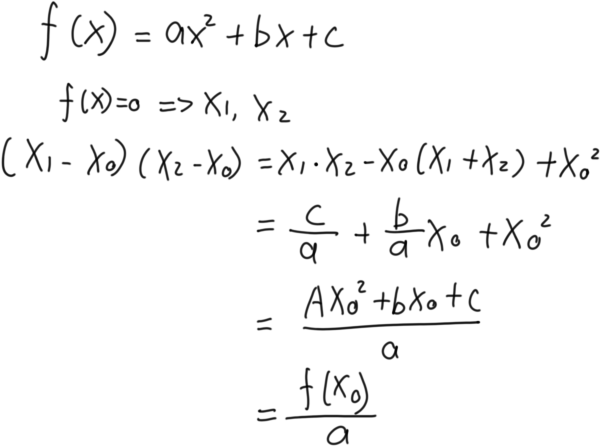 f(x) = ax² + bx + c
f(x)=0 => x₁, x₂
(x₁ - x₀)(x₂ - x₀) = x₁·x₂ - x₀(x₁ + x₂) + x₀²
= c/a + b/a x₀ + x₀²
= (Ax₀² + bx₀ + c)/a
= f(x₀)/a